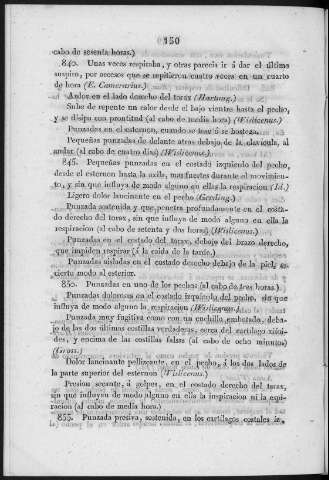 150
cabo de sesenta horas.)
840. Unas veces respiraba, y otras parecia ir á dar el último
suspiro, por accesos que se repitieron cuatro veces en un cuarto
de hora (E. Camerarius.)
Ardor en el lado derecho del torax (Hartung.)
Sube de repente un calor desde el bajo vientre hasta el pecho,
y se disipa con prontitud (al cabo de media hora) (Wislicenus.)
Punzadas en el esternon, cuando se tose ó se bosteza.
Pequeñas punzadas de delante atras debajo de la clavícula, al
andar (al cabo de cuatro dias) (Wislicenus.)
845. Pequeñas punzadas en el costado izquierdo del pecho,
desde el esternon hasta la axila, mas fuertes durante el movimien-
to, y sin que influya de modo alguno en ellas la respiracion (Id.)
Ligero dolor lancinante en el pecho (Gersling.)
Punzada sostenida y que penetra profundamente en el costa-
do derecho del torax, sin que influya de modo alguno en ella la
respiracion (al cabo de setenta y dos horas) (Wislicenus.)
Punzadas en el costado del torax, debajo del brazo derecho,
que impiden respirar (á la caida de la tarde.)
Punzadas aisladas en el costado derecho debajo de la piel, en
cierto modo al esterior.
850. Punzadas en uno de los pechos (al cabo de tres horas.)
Punzadas dolorosas en el costado izquierdo del pecho, sin que
influya de modo alguno la respiracion (Wislicenus.)
Punzada muy fugitiva como con un cuchillo embotado, deba-
jo de las dos últimas costillas verdaderas, cerca del cartílago xifoi-
des, y encima de las costillas falsas (al cabo de ocho minutos)
(Gross.)
Dolor lancinante pellizcante, en el pecho, á los dos lados de
la parte superior del esternon (Wislicenus.)
Presion secante, á golpes, en el costado derecho del torax,
sin que influyan de modo alguno en ella la inspiracion ni la espi-
racion (al cabo de media hora.)
855. Punzada presiva, sostenida, en los cartílagos costales iz,